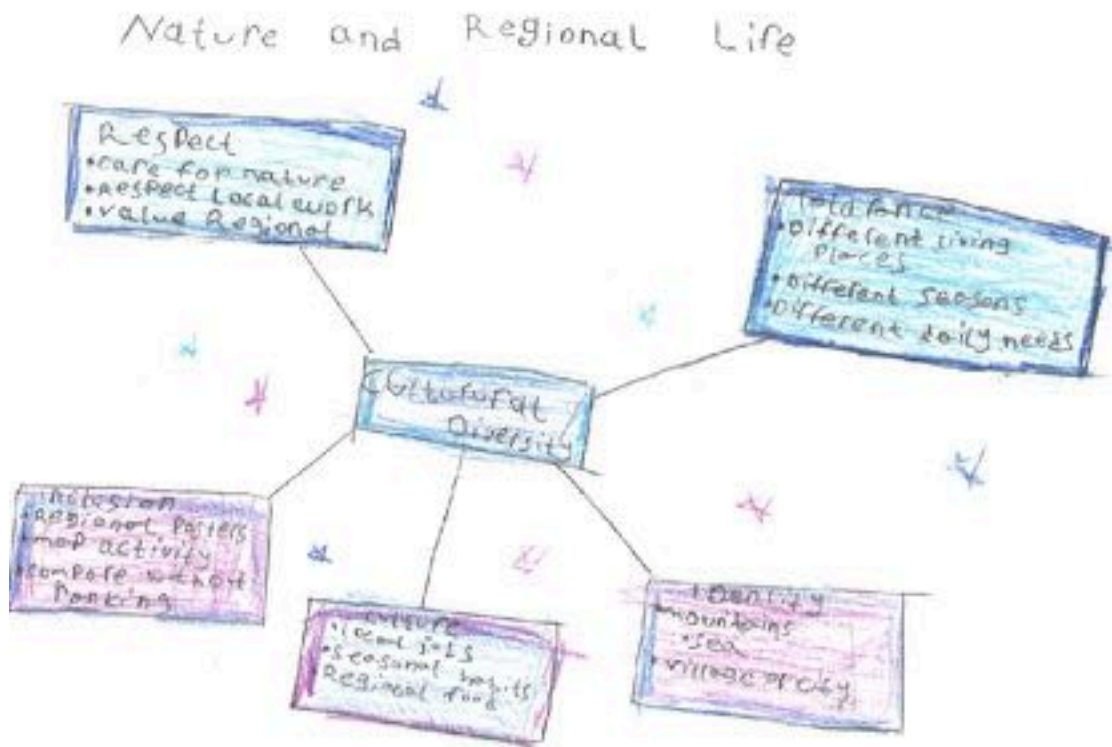 Nature and Regional Life
Respect
•care for nature
•Respect Local work
•value Regional
Tolarance
•Different Living
Places
•Different seasons
•Different daily needs
Cultutural
Diversity
inclusion
•Regional Posters
•map activity
•compare without
Ranking
culture
•local jobs
•seasonal habits
•Regional food
identity
•mountains
•sea
•village or city